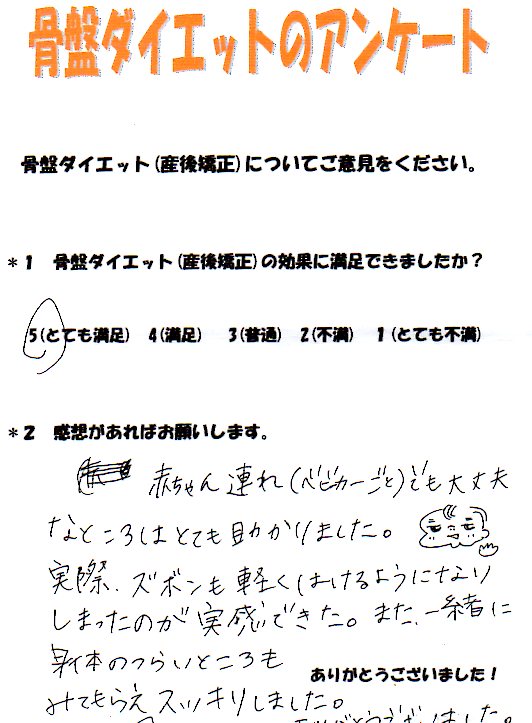 骨盤ダイエットのアンケート
骨盤ダイエット(産後矯正)についてご意見をください。
*1 骨盤ダイエット(産後矯正)の効果に満足できましたか?
5(とても満足) 4(満足) 3(普通) 2(不満) 1(とても不満)
*2 感想があればお願いします。
赤ちゃん連れ(ベビカーごと)でも大丈夫
なところはとても助かりました。
実際、ズボンも軽くはけるようになり
しまったのが実感できた。また、一緒に
身体のつらいところも
ありがとうございました!
みてもらえスッキリしました。
ありがとうございました。